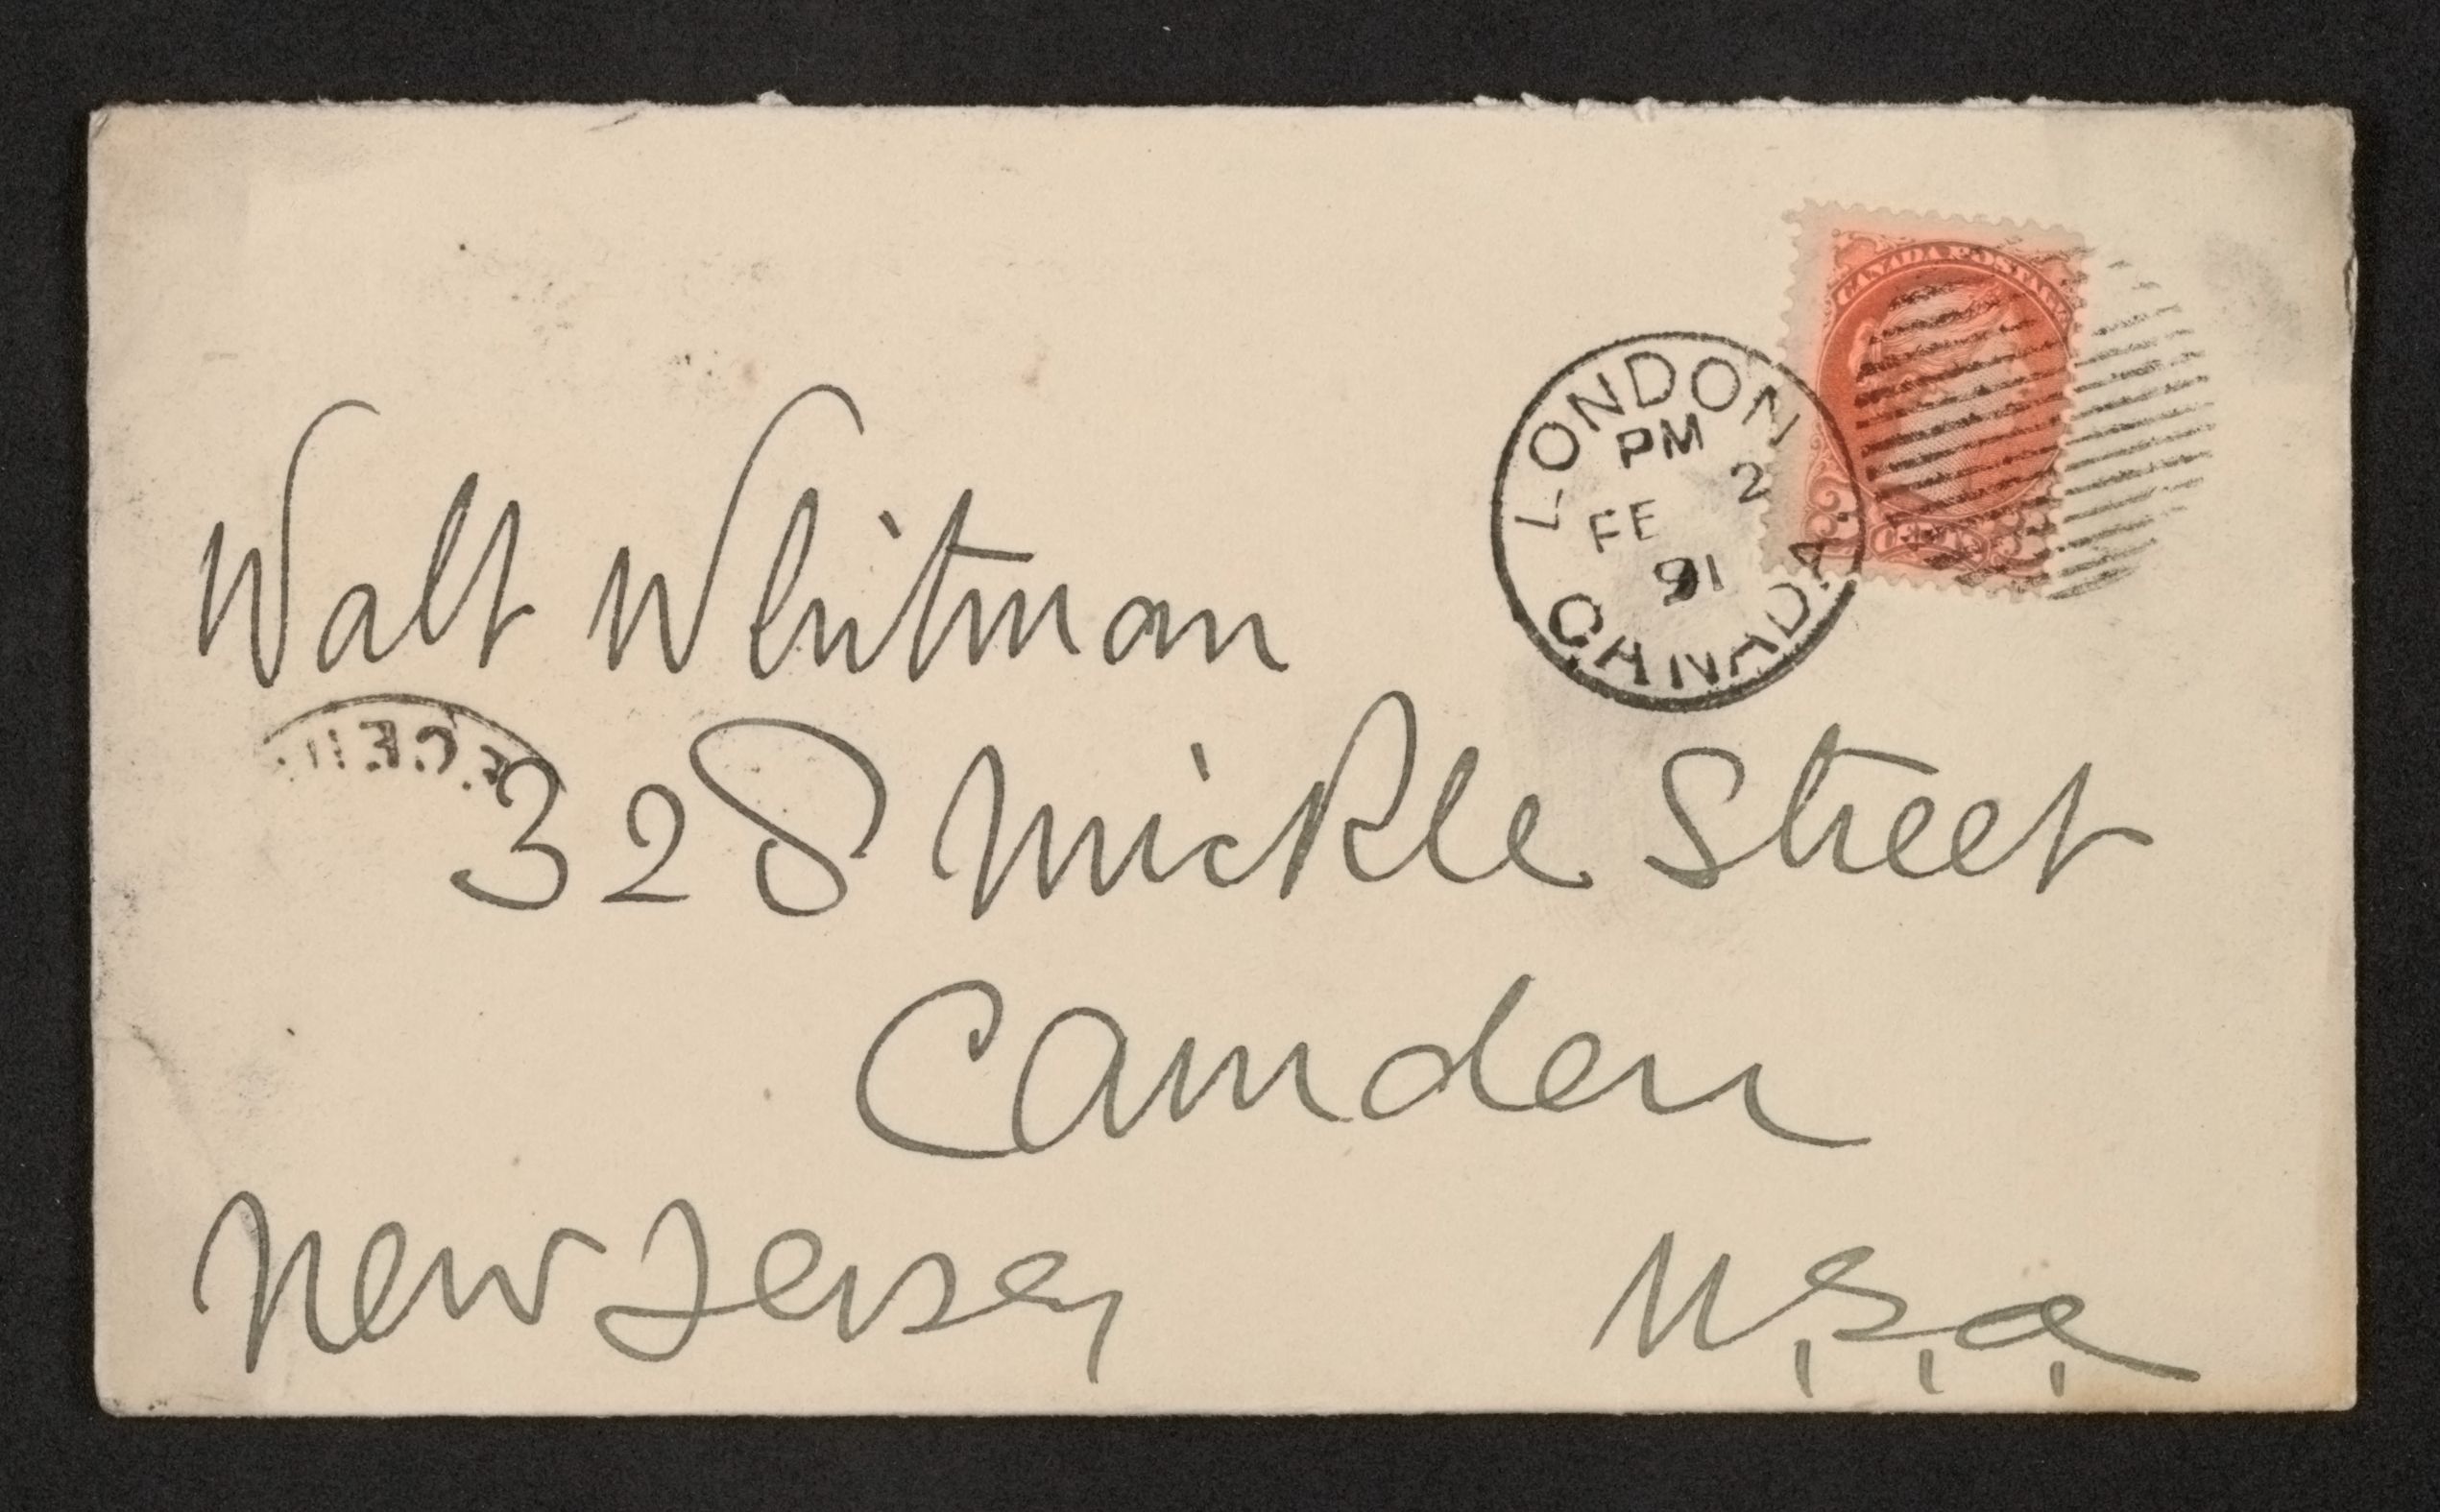 CANADA POSTAGE
LONDON
PM
FE 2
91
CANADA
Walt Whitman
328 Mickle Street
Camden
New Jersey U.S.a.